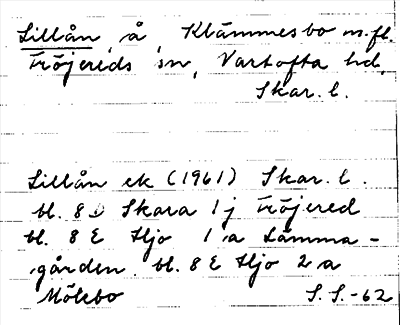 Lillån, å, Klämmesbo m.fl.
Fröjereds sn, Vartofta hd,
Skar. l.
Lillån ek (1961) Skar. l.
bl. 8 D Skara 1 j Fröjered
bl. 8 E Hjo 1 a Lämma-
gården. bl. 8 E Hjo 2 a
Mölebo S.S.-62